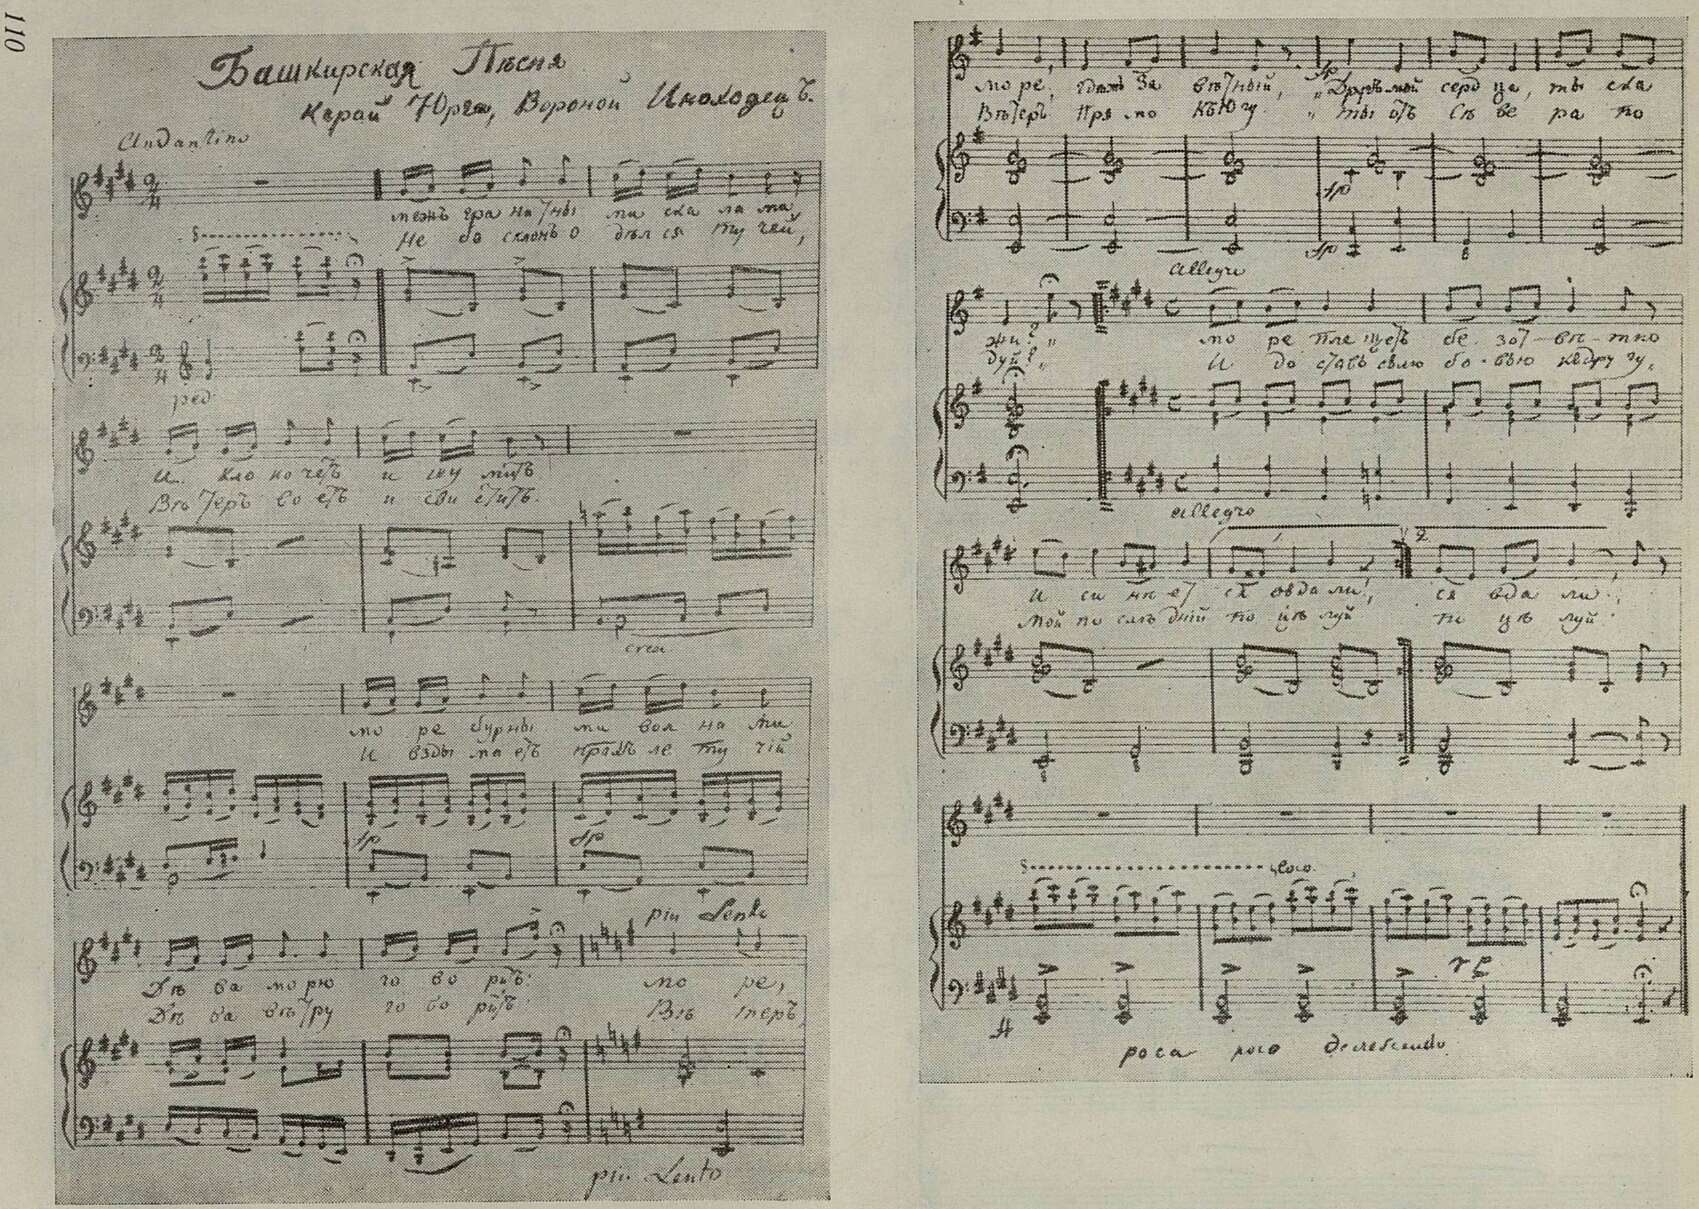 110
Башкирская Пѣсня
Карай Юрга, Вороной Иноходецъ.
Andantino
межъ гра на тны ми ска ла ми
Не бо склонъ о дѣл ся ту чей,
8
ped
И кло ко четъ и шу митъ
Вѣ теръ во етъ и сви ститъ.
cres.
мо ре бурны ми вол на ми
И взды ма етъ прахъ ле ту чій
sp
sp
più Lento
Дѣ ва мо рю го во ритъ: мо ре,
Дѣ ва вѣ тру го во ритъ: Вѣ теръ,
più Lento
мо ре, гдѣжъ За вѣ тный, „Другъ мой серд ца, ты ска
Вѣ теръ Пря мо къ Югу. „ты отъ Сѣ ве ра по
sp
sp
Allegro
жи? „ мо ре пле щетъ бе за вѣ тно
дуй? „ И до ставь съ лю бо вью къ другу,
Allegro
2.
И си нѣ ет ся вда ли, ся вда ли.,
мой по слѣ дній по цѣ луй по цѣ луй.
8 loco.
poca poco decrescendo